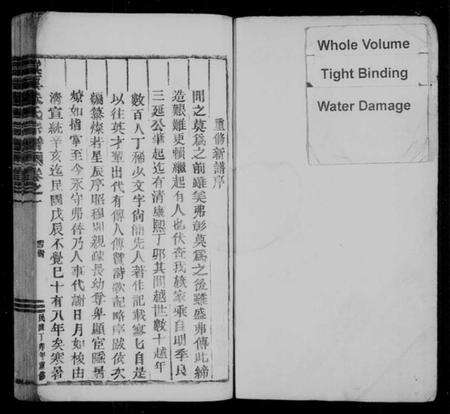 重修新譜序
聞之莫為之前雖美弗彰莫為之後雖盛弗傳此締
造艱難更賴繼起有人也伏查我族家乘自明季良
三延公肇起迄有清康熙丁卯其間越世數十越年
數百人丁稀少文字尚簡先人著生記載寥七自是
以往英才輩出代有傳人傳贊詩歌記略序跋依次
編纂燦若星辰序昭穆別親疎長幼尊卑顯宦隱
瞭如指掌至今永守弗替乃人事代謝日月如梭由
清宣統辛亥迄民國戊辰不覺已十有八年矣寒暑
Whole Volume
Tight Binding
Water Damage